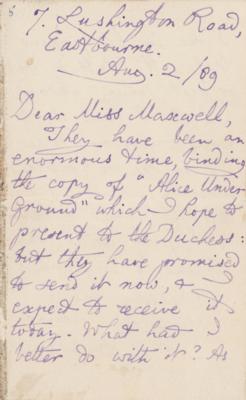 7, Lushington Road,
Eastbourne.
Aug. 2/89
Dear Miss Maxwell,
They have been an
enormous time, binding
the copy of "Alice Under
Ground" which I hope to
present to the Duchess:
but they have promised
to send it now, & I
expect to receive it
today. What had I
better do with it? As